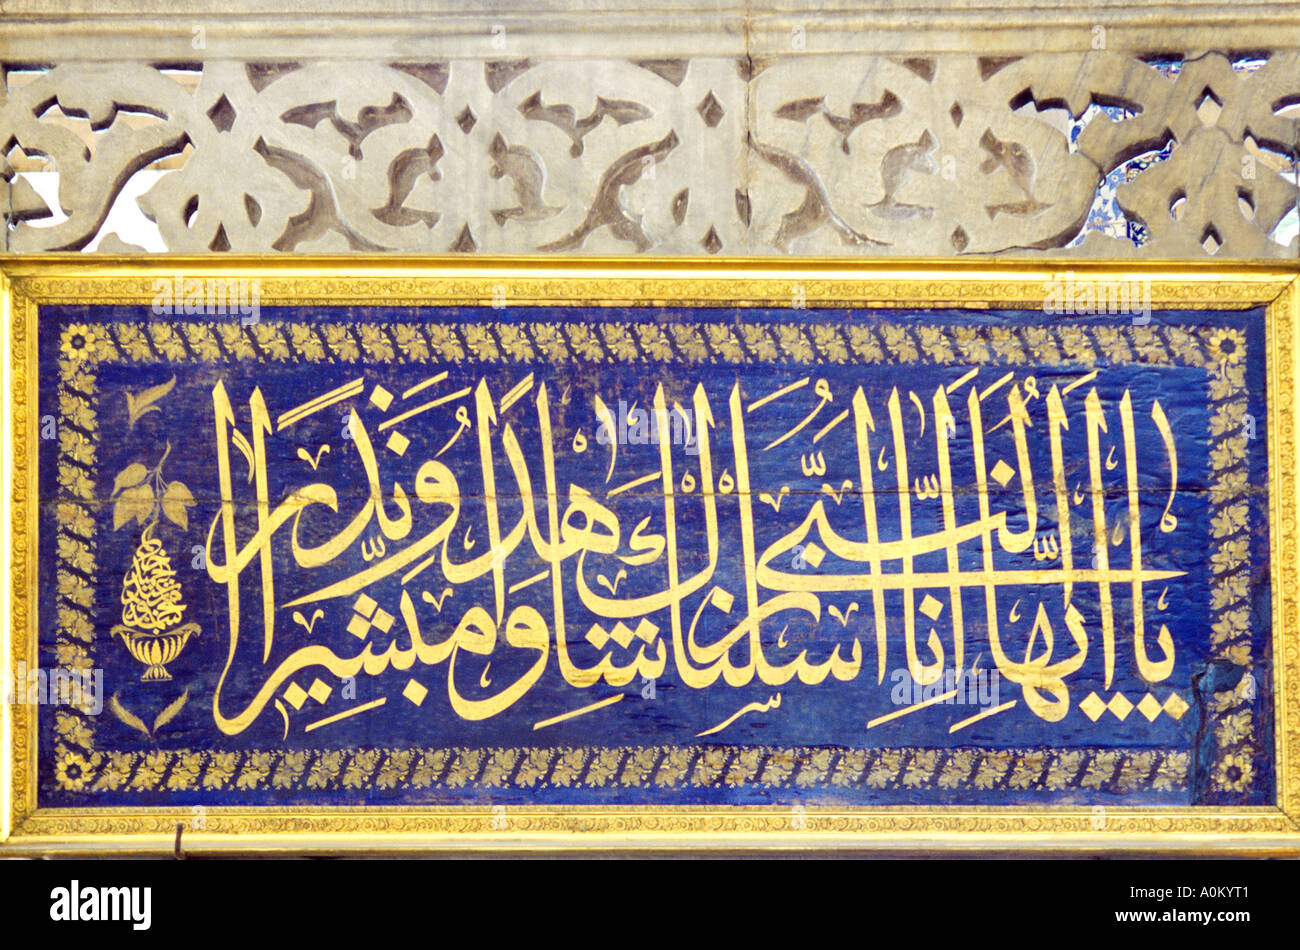 يا أيها النبي إنا أرسلناك شاهدا ومبشرا ونذيرا
alamy
alamy
Image ID: A0KYT1
www.alamy.com